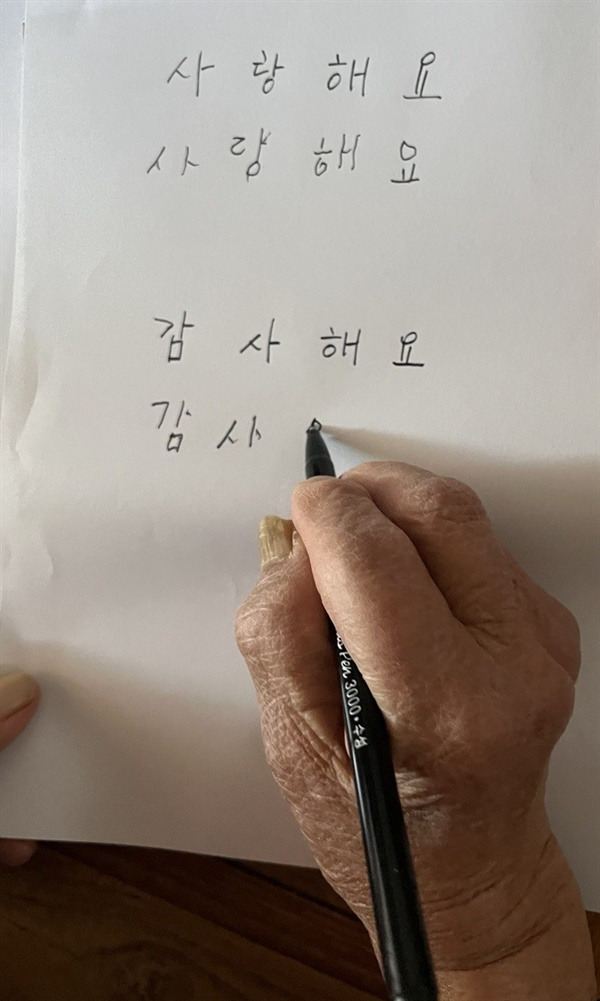 사랑해요
사랑해요
감사해요
감사
Pen 3000 • 수성